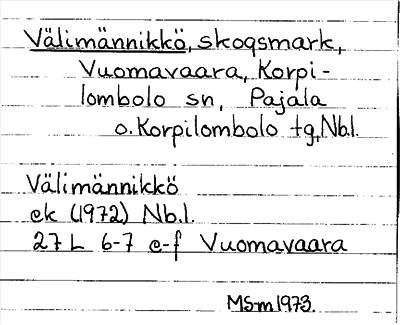 Välimännikkö, skogsmark,
Vuomavaara, Korpi-
lombolo sn, Pajala
o. Korpilombolo tg, Nb.l.
Välimännikkö
ek (1972) Nb.l.
27 L 6-7 e-f Vuomavaara
MS-m 1973.